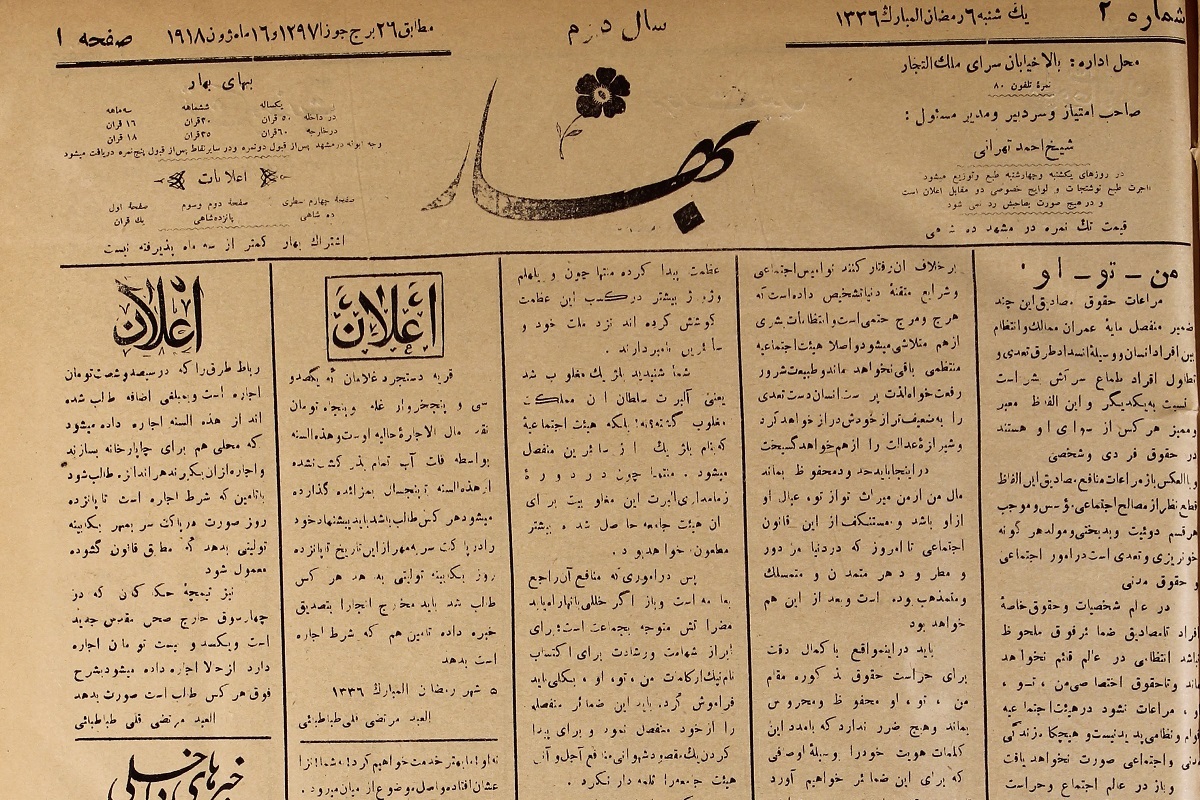 شماره ۲
یك شنبه ۶ رمضان المبارك ۱۳۳۶
سال دوم
مطابق ۲۶ برج جوزا ۱۲۹۷ و ۱۶ ماه ژون ۱۹۱۸
صفحه ۱
محل اداره: بالاخیابان سرای ملك التجار
نمرهٔ تلفون ۸۰
صاحب امتیاز و سردبیر و مدیر مسئول:
شیخ احمد تهرانی
در روزهای یكشنبه وچهارشنبه طبع وتوزیع میشود
اجرت طبع نوشتجات و لوایح خصوصی در مقابل اعلان است
و در هیچ صورت بصاحبش رد نمی شود
قیمت تك نمره در مشهد ده شاهی
بهار
بهای بهار
یكساله ششماهه سه ماهه
در داخله ۵۰ قران ۳۰ قران ۱۶ قران
درخارجه ۶۰ قران ۳۵ قران ۱۸ قران
وجه ابونه درمشهد پس از قبول دونمره ودر سایر نقاط پس از قبول پنج نمره دریافت میشود
اعلانات
صفحه اول صفحه دوم وسوم صفحه چهارم سطری
یك قران پانزده شاهی ده شاهی
اشتراك بهار كمتر از سه ماه پذیرفته نیست
من ـ تو ـ او
مراعات حقوق مصادیق این چند
ضمیر منفصل مایهٔ عمران ممالك وانتظام
بین افراد انسان و وسیلهٔ انسداد طرق تعدی و
تطاول افراد طماع سركش بشر است
نسبت به یكدیگر و این الفاظ معبر
وممیز هر كس از سوای او هستند
در حقوق فردی وشخصی
وبالعكس باز مراعات منافع مصادیق این الفاظ
قطع نظر از مصالح اجتماعی مؤسس وموجب
هر قسم دوئیت وبدبختی ومولد هر گونه
خونریزی وتعدی است در امور اجتماعی
حقوق مدنی
در عالم شخصیات وحقوق خاصهٔ
افراد تا مصادیق ضمائر فوق ملحوظ
نباشد انتظامی در عالم قائم نخواهد
ماند وتا حقوق اختصاصی من ، تو ،
او ، مراعات نشود در هیئت اجتماعیه
قوام ونظامی پدید نیست و هیچگاه زندگی
مدنی واجتماعی صورت نخواهد یافت
وباز در عالم اجتماع وحراست
بر خلاف آن رفتار كنند نوامیس اجتماعی
وشرایع متقنهٔ دنیا تشخیص داده است كه
هرج ومرج حتمی است وانتظامات بشری
از هم متلاشی میشود و اصلا هیئت اجتماعیه
منتظمی باقی نخواهد ماند وطبیعت شرور
رفعت خواه لذت پرست انسان دست تعدی
را به ضعیف تر از خودش دراز خواهد كرد
وشیرازهٔ عدالت را از هم خواهد گسیخت
در اینجا باید حدود محفوظ بماند
مال من از من میراث تو از تو ، عیال او
از او باشد و مستنكف از این قانون
اجتماعی تا امروز كه در دنیا مزدور
و مطرود هر متمدن و متمسك
و متمذهب بوده است و بعد از این هم
خواهد بود
باید در اینمواقع با كمال دقت
برای حراست حقوق مذكوره مقام
من ، تو ، او محفوظ و محروس
بماند وهیچ ضرر ندارد كه بامدد این
كلمات هویت خود را وسیلهٔ اوصافی
كه برای این ضمائر خواهیم آورد
عظمت پیدا كرده منتها چون ویلهلم
و ژوژ بیشتر در كسب این عظمت
كوشش كرده اند نزد ملت خود و
سائرین نامبردارند .
شما شنیدید بلژیك مغلوب شد
یعنی آلبرت سلطان آن مملكت
مغلوب گشته ؟ نه ! بلكه هیئت اجتماعیهٔ
كه نام بلژیك از سائرین منفصل
میشود . منتها چون در دورهٔ
زمامداری آلبرت این مغلوبیت برای
آن هیئت جامعه حاصل شده بیشتر
مطعون خواهد بود .
پس در اموری كه منافع آن راجع
بعامه است وباز اگر خللی بآنها راه یابد
مضراتش متوجه بجماعت است ؛ برای
ابراز شهامت ورشادت برای اكتساب
نام نیك از كلمات من ، تو ، او ، بكلی باید
فراموش كرد. باید این ضمائر منفصله
را از خود منفصل نمود و برای پیدا
كردن یك مقصود شهوانی منافع آجل و آنی
هیئت جامعه را لكه دار نكرد .
اعلان
قریه دستجرد غلامان كه یكصدو
سی و پنج خروار غله و پنجاه تومان
نقد مال الاجارهٔ حالیه اوست وهذه السنه
بواسطه قنات آب تمام بذر كشت نشده
از هذه السنه تا پنجسال بمزائده گذارده
میشود هر كس طالب باشد باید پیشنهاد خود
را در پاكت سر بمهر از این تاریخ تا پانزده
روز بكابینه تولیتی بدهد هر كس
طالب شد باید مخارج آنجا را بتصدیق
خبره داده تامین هم كه شرط اجاره
است بدهد
۵ شهر رمضان المبارك ۱۳۳۶
العبد مرتضی قلی طباطبائی
اعلان
رباط طرق را كه در سیصد و شصت تومان
اجاره است و بمبلغی اضافه طالب شده
اند از هذه السنه اجاره داده میشود
كه محلی هم برای چاپارخانه بسازند
و اجاره از آن بگیرند هر اندازه طالب شود
با تامین كه شرط اجاره است تا پانزده
روز صورت در پاكت سر بمهر بكابینه
تولیتی بدهد كه مطابق قانون گشوده
معمول شود
نیز تیمچهٔ حكاكان كه در
چهارسوق خارج صحن مقدس جدید
است ویكصد و بیست تومان اجاره
دارد از حالا اجاره داده میشود بشرح
فوق هر كس طالب است صورت بدهد
العبد مرتضی قلی طباطبائی
خبرهای داخلی